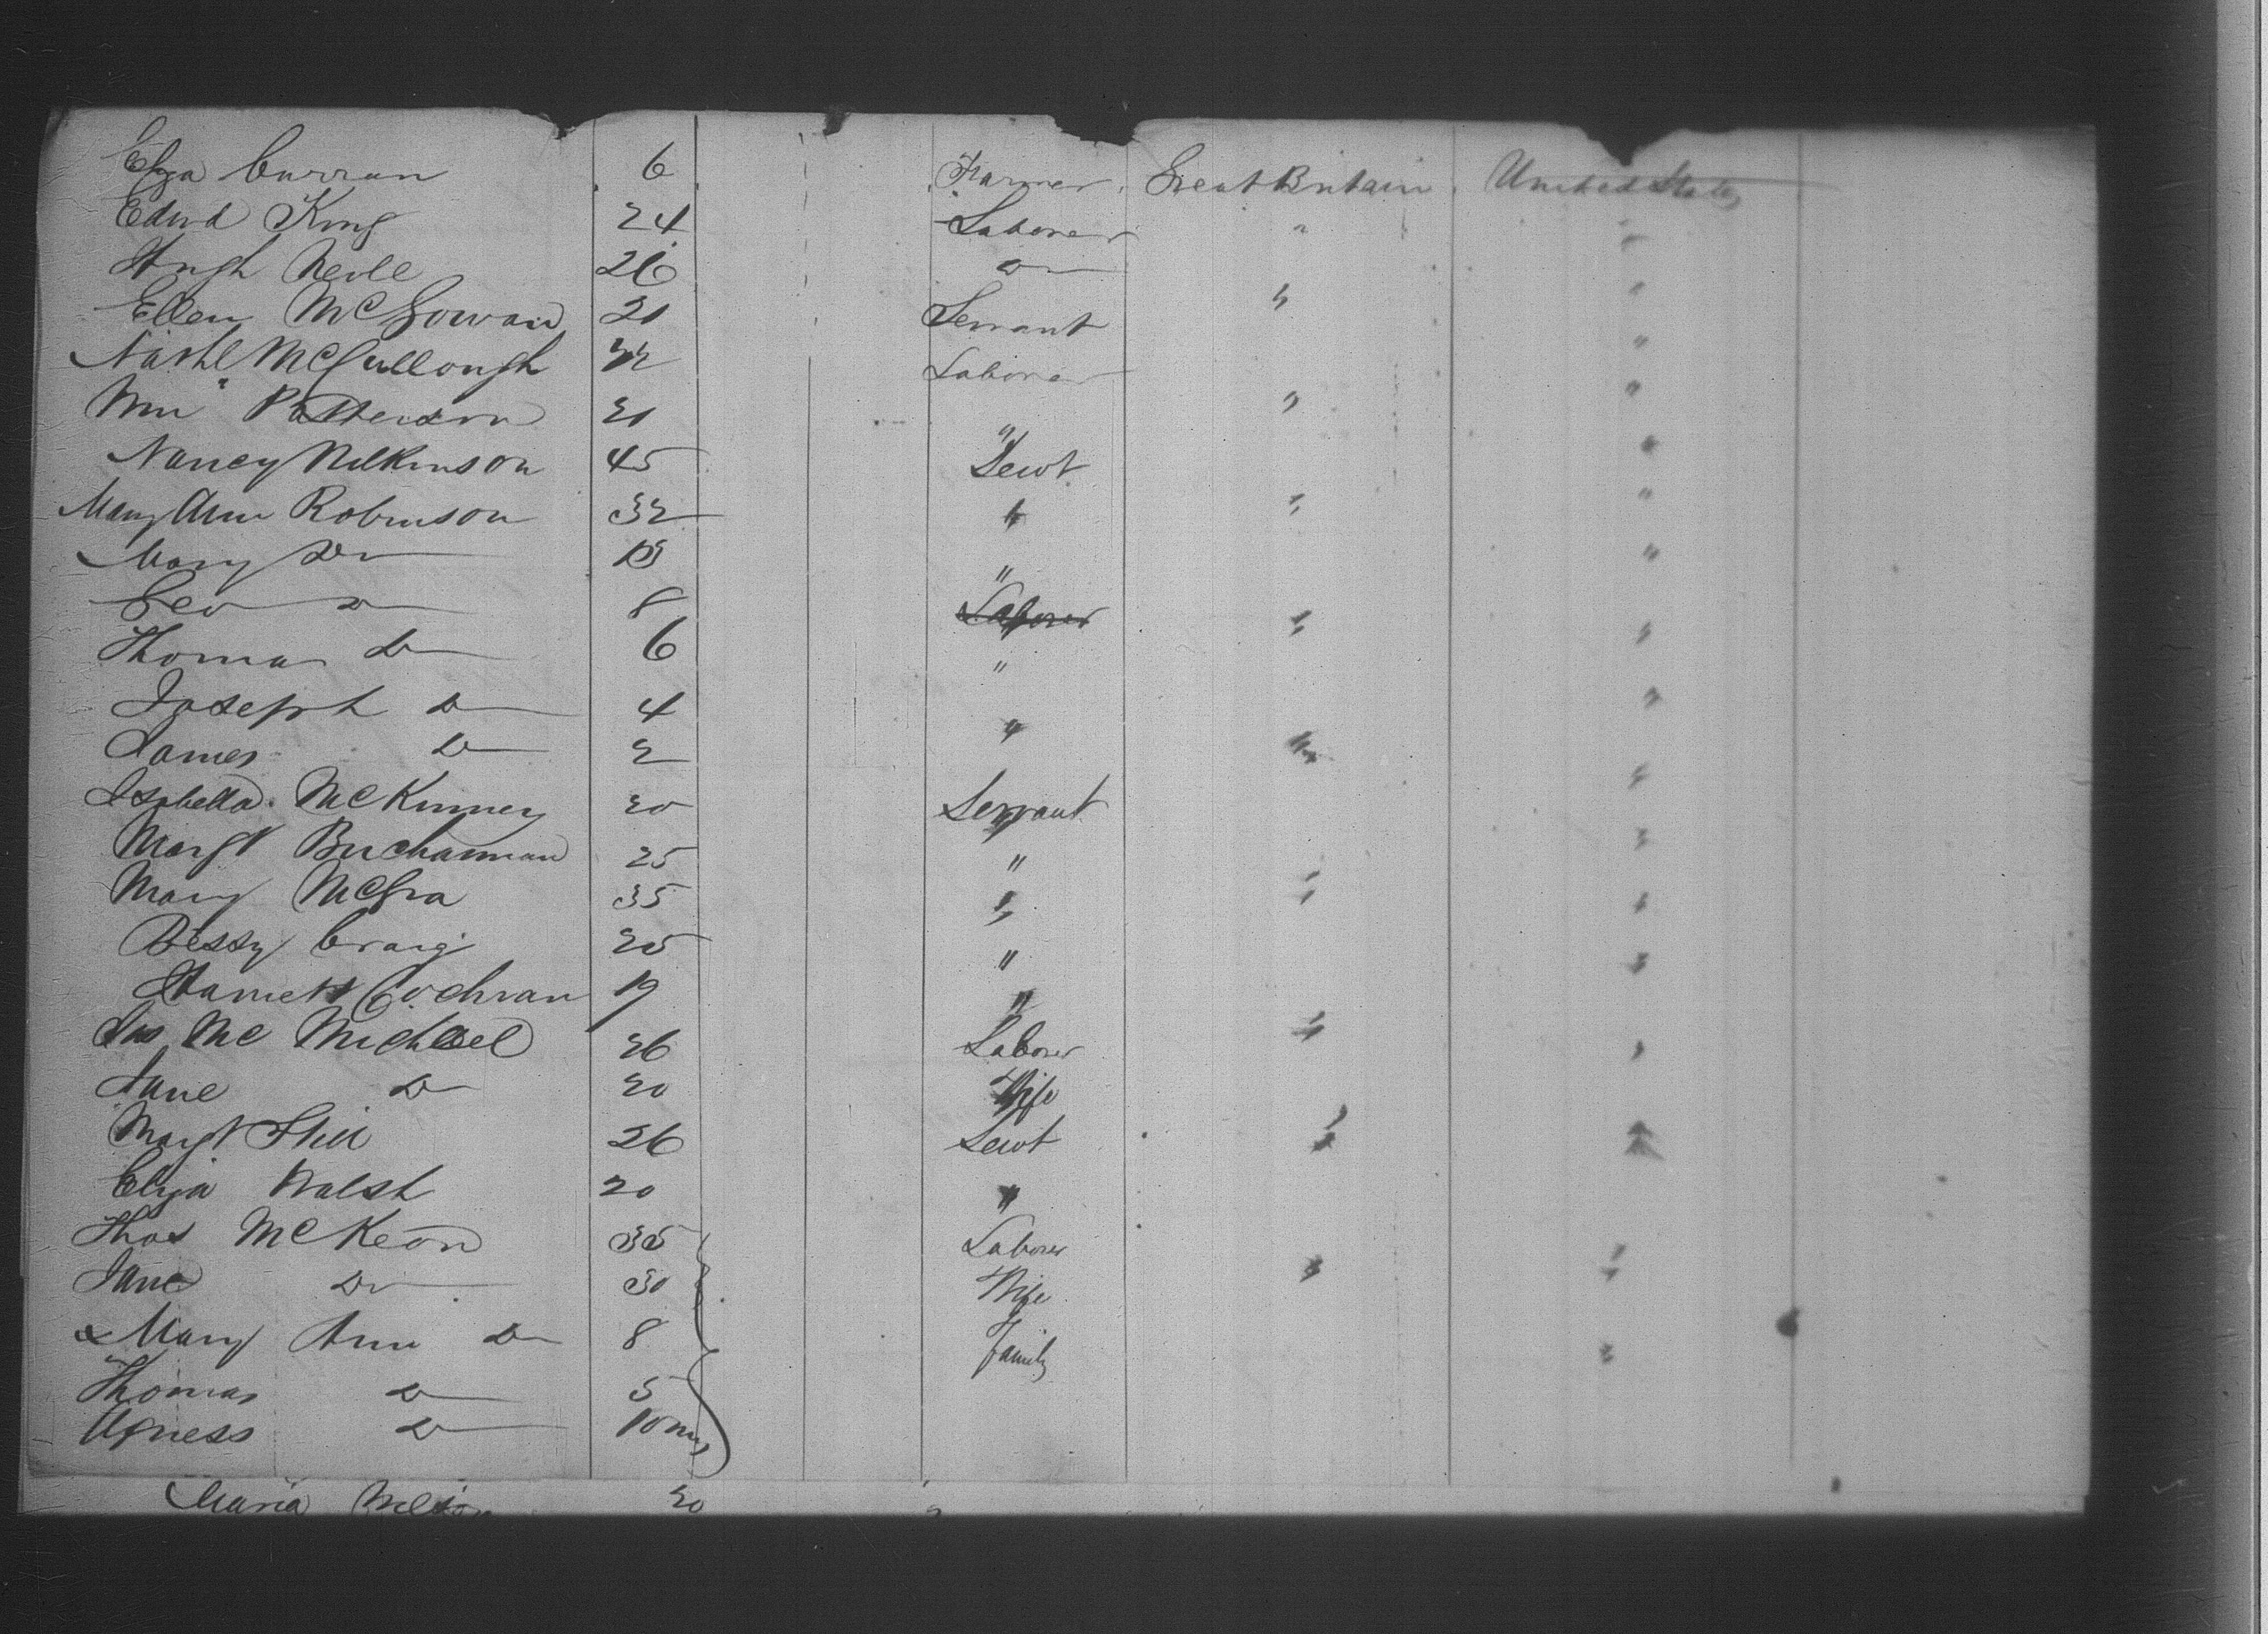 Eliza Curran 6 Farmer Great Britain United States
Edwd King 24 Laborer " "
Hugh Nevle 26 Do "
Ellen McGowan 21 Servant " "
Nathl McCullough 22 Laborer "
Wm Patterson 21 " " "
Nancy Wilkinson 45 Servt "
Mary Ann Robinson 32 " " "
Mary Do " "
Geo Do 8 "
Thomas Do 6 " "
Joseph Do 4 " "
James Do 2 "
Isabella McKinney 20 Servant "
Margt Buchannan 25 " "
Mary McGra 35 " " "
Bessy Craig 25 " "
Harriett Cochran 19 "
Jas McMichael 26 Laborer " "
Jane Do 20 Wife
Margt 26 Servt " "
Eliza Walsh 20 "
Thos McKeon 35 Laborer
Jane Do 30 Wife " "
& Mary Ann Do 8 Family "
Thomas Do 5
Agness Do 10 mos
Maria 20